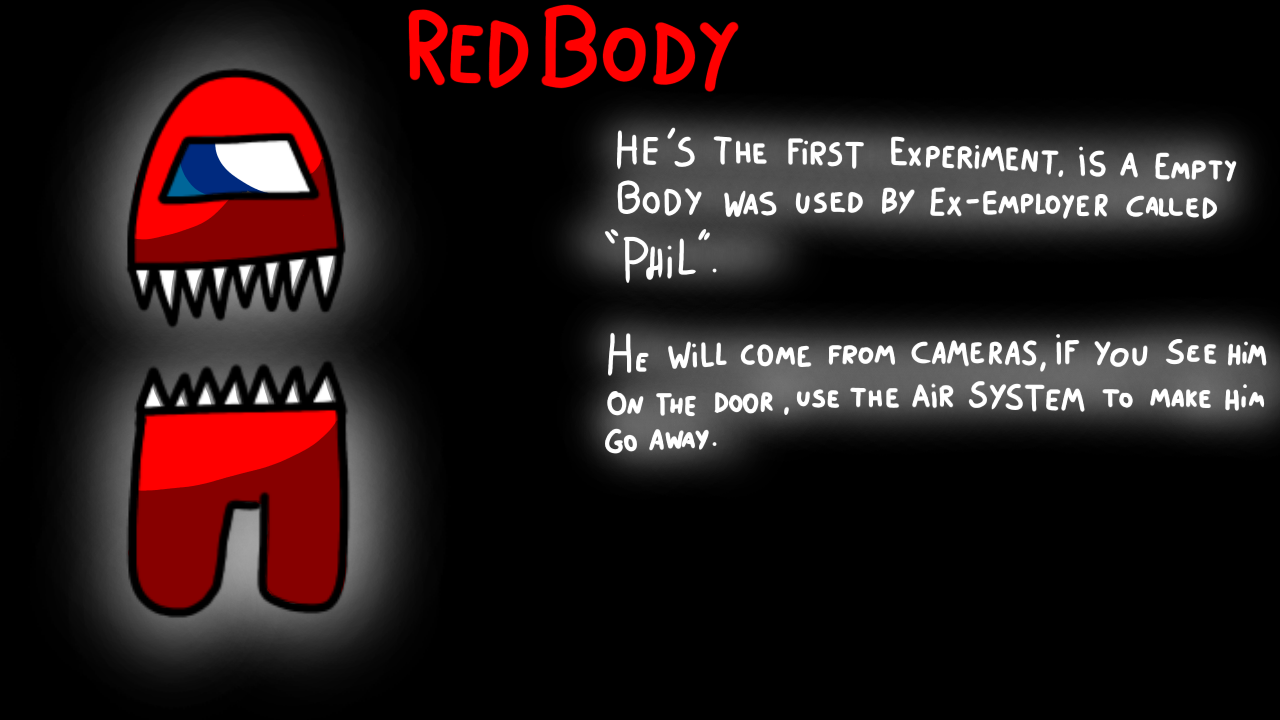 RED BODY
HE'S THE FIRST EXPERIMENT, IS A EMPTY
BODY WAS USED BY EX-EMPLOYER CALLED
"PHIL".
HE WILL COME FROM CAMERAS, IF YOU SEE HIM
ON THE DOOR, USE THE AIR SYSTEM TO MAKE HIM
GO AWAY.